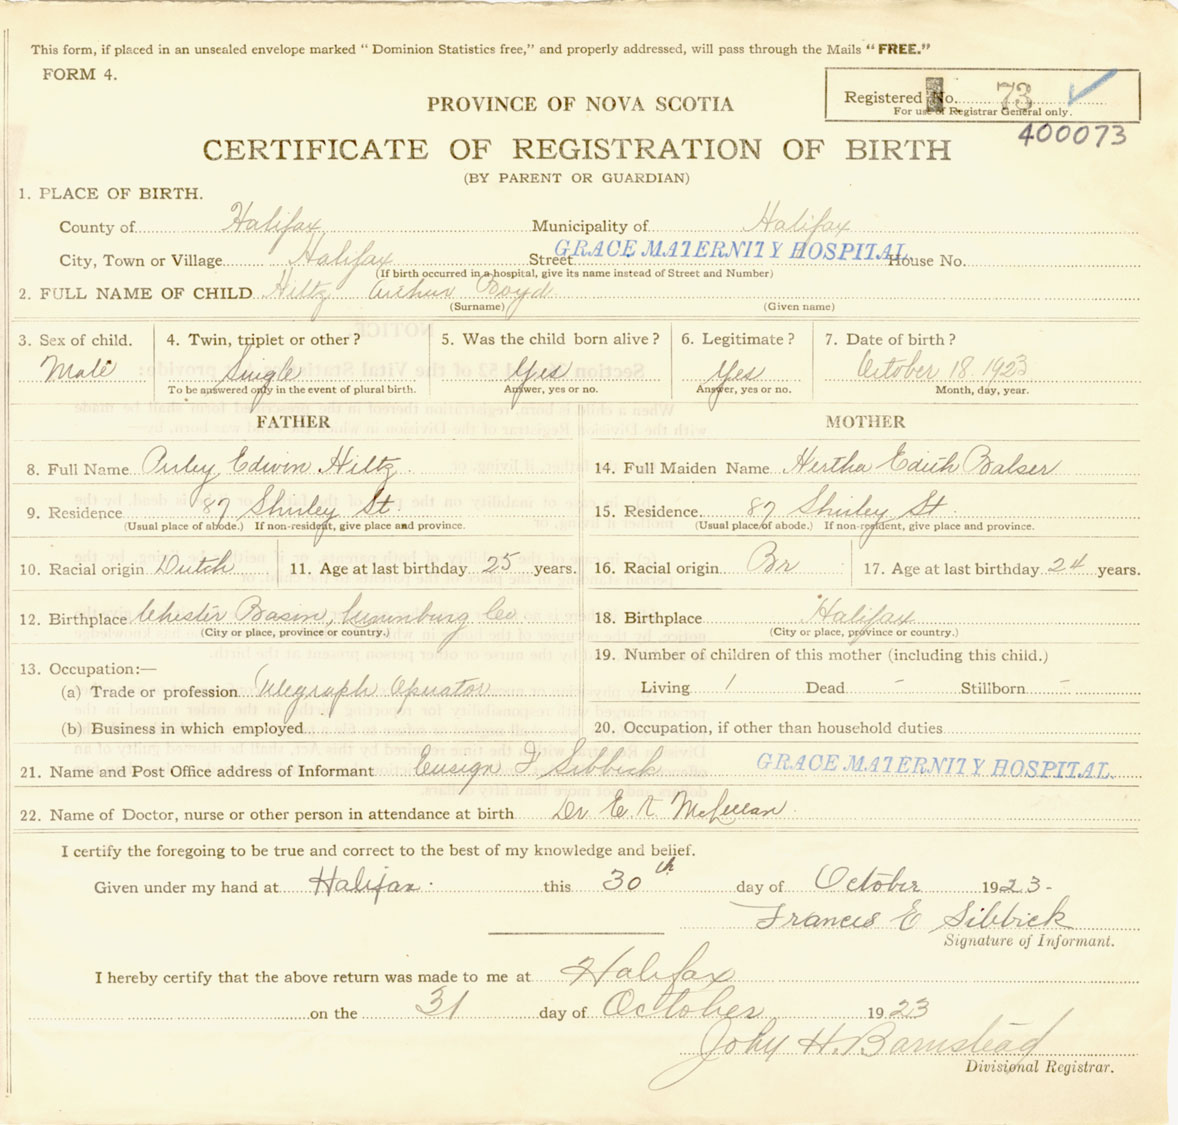 This form, if placed in an unsealed envelope marked "Dominion Statistics free," and properly addressed, will pass through the Mails "FREE."
FORM 4.
Registered No. 73
For use of Registrar General only.
PROVINCE OF NOVA SCOTIA
400073
CERTIFICATE OF REGISTRATION OF BIRTH
(BY PARENT OR GUARDIAN)
1. PLACE OF BIRTH.
County of Halifax Municipality of Halifax
City, Town or Village Halifax Street GRACE MATERNITY HOSPITAL House No.
(If birth occurred in a hospital, give its name instead of Street and Number)
2. FULL NAME OF CHILD Hiltz Arthur
(Surname) (Given name)
3. Sex of child. 4. Twin, triplet or other? 5. Was the child born alive? 6. Legitimate? 7. Date of birth?
Male Single Yes Yes October 18. 1923
To be answered only in the event of plural birth. Answer, yes or no. Answer, yes or no. Month, day, year.
FATHER MOTHER
8. Full Name Edwin Hiltz 14. Full Maiden Name Hertha Edith Balser
9. Residence 87 Shirley St. 15. Residence. 87 Shirley St.
(Usual place of abode.) If non-resident, give place and province. (Usual place of abode.) If non-resident, give place and province.
10. Racial origin Dutch 11. Age at last birthday 25 years. 16. Racial origin Br 17. Age at last birthday 24 years.
12. Birthplace Chester Basin, Lunenburg Co 18. Birthplace Halifax
(City or place, province or country.) (City or place, province or country.)
13. Occupation:— 19. Number of children of this mother (including this child.)
(a) Trade or profession Telegraph Operator Living 1 Dead - Stillborn -
(b) Business in which employed 20. Occupation, if other than household duties
21. Name and Post Office address of Informant Ensign F Sibbick GRACE MATERNITY HOSPITAL.
22. Name of Doctor, nurse or other person in attendance at birth Dr E.
I certify the foregoing to be true and correct to the best of my knowledge and belief.
Given under my hand at Halifax. this 30th day of October 1923-
Francis E Sibbick
Signature of Informant.
I hereby certify that the above return was made to me at Halifax
on the 31 day of October 1923
John H. Barnstead
Divisional Registrar.